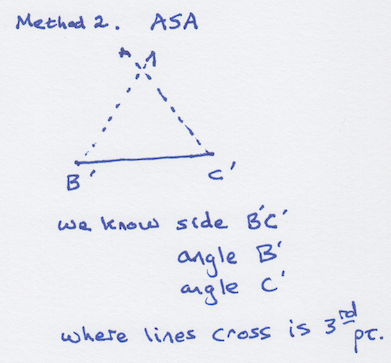 Method 2. ASA
B' C'
we know side B'C'
angle B'
angle C'
where lines cross is 3rd
pt.